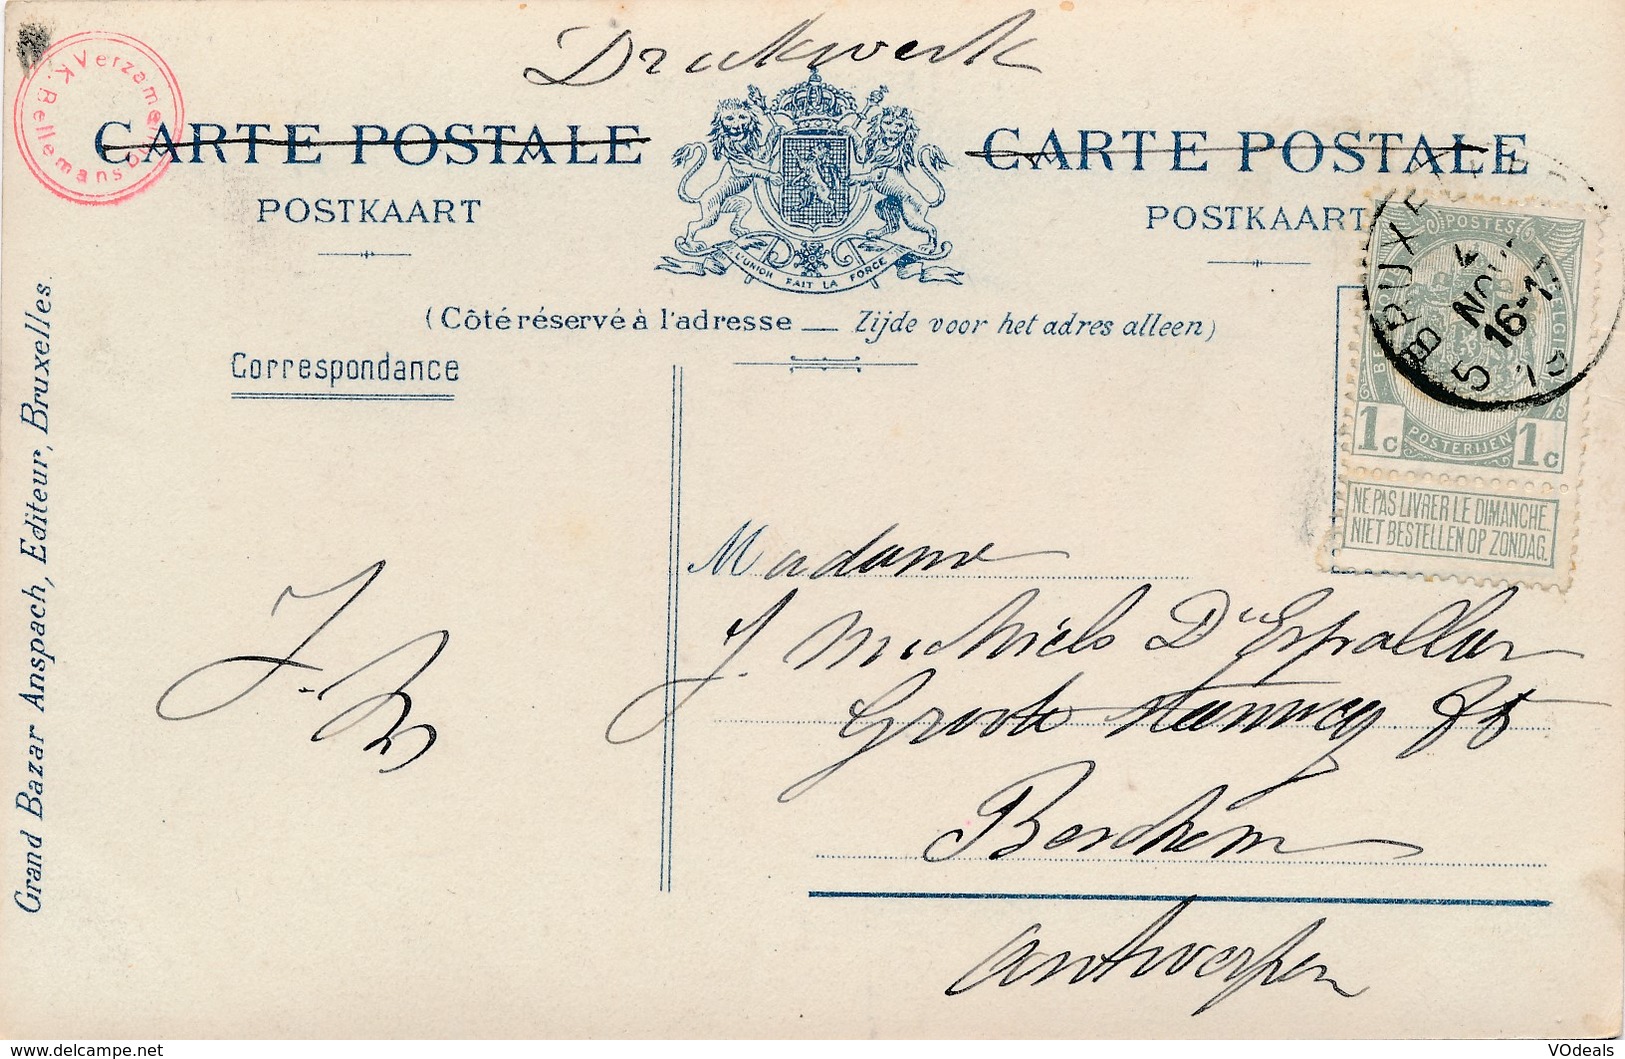 Drukwerk
Verzameling
K. Bellemans
CARTE POSTALE
CARTE POSTALE
POSTKAART
POSTKAART
L'UNION FAIT LA FORCE
(Côté réservé à l'adresse — Zijde voor het adres alleen)
Correspondance
Grand Bazar Anspach, Editeur, Bruxelles.
BRUXELLES
4
NOV
16-17
5
POSTES
BELGIQUE
POSTERIJEN
1c
1c
NE PAS LIVRER LE DIMANCHE.
NIET BESTELLEN OP ZONDAG.
Madame
J. Michiels D'Espallier
Groote steenweg
Berchem
Antwerpen